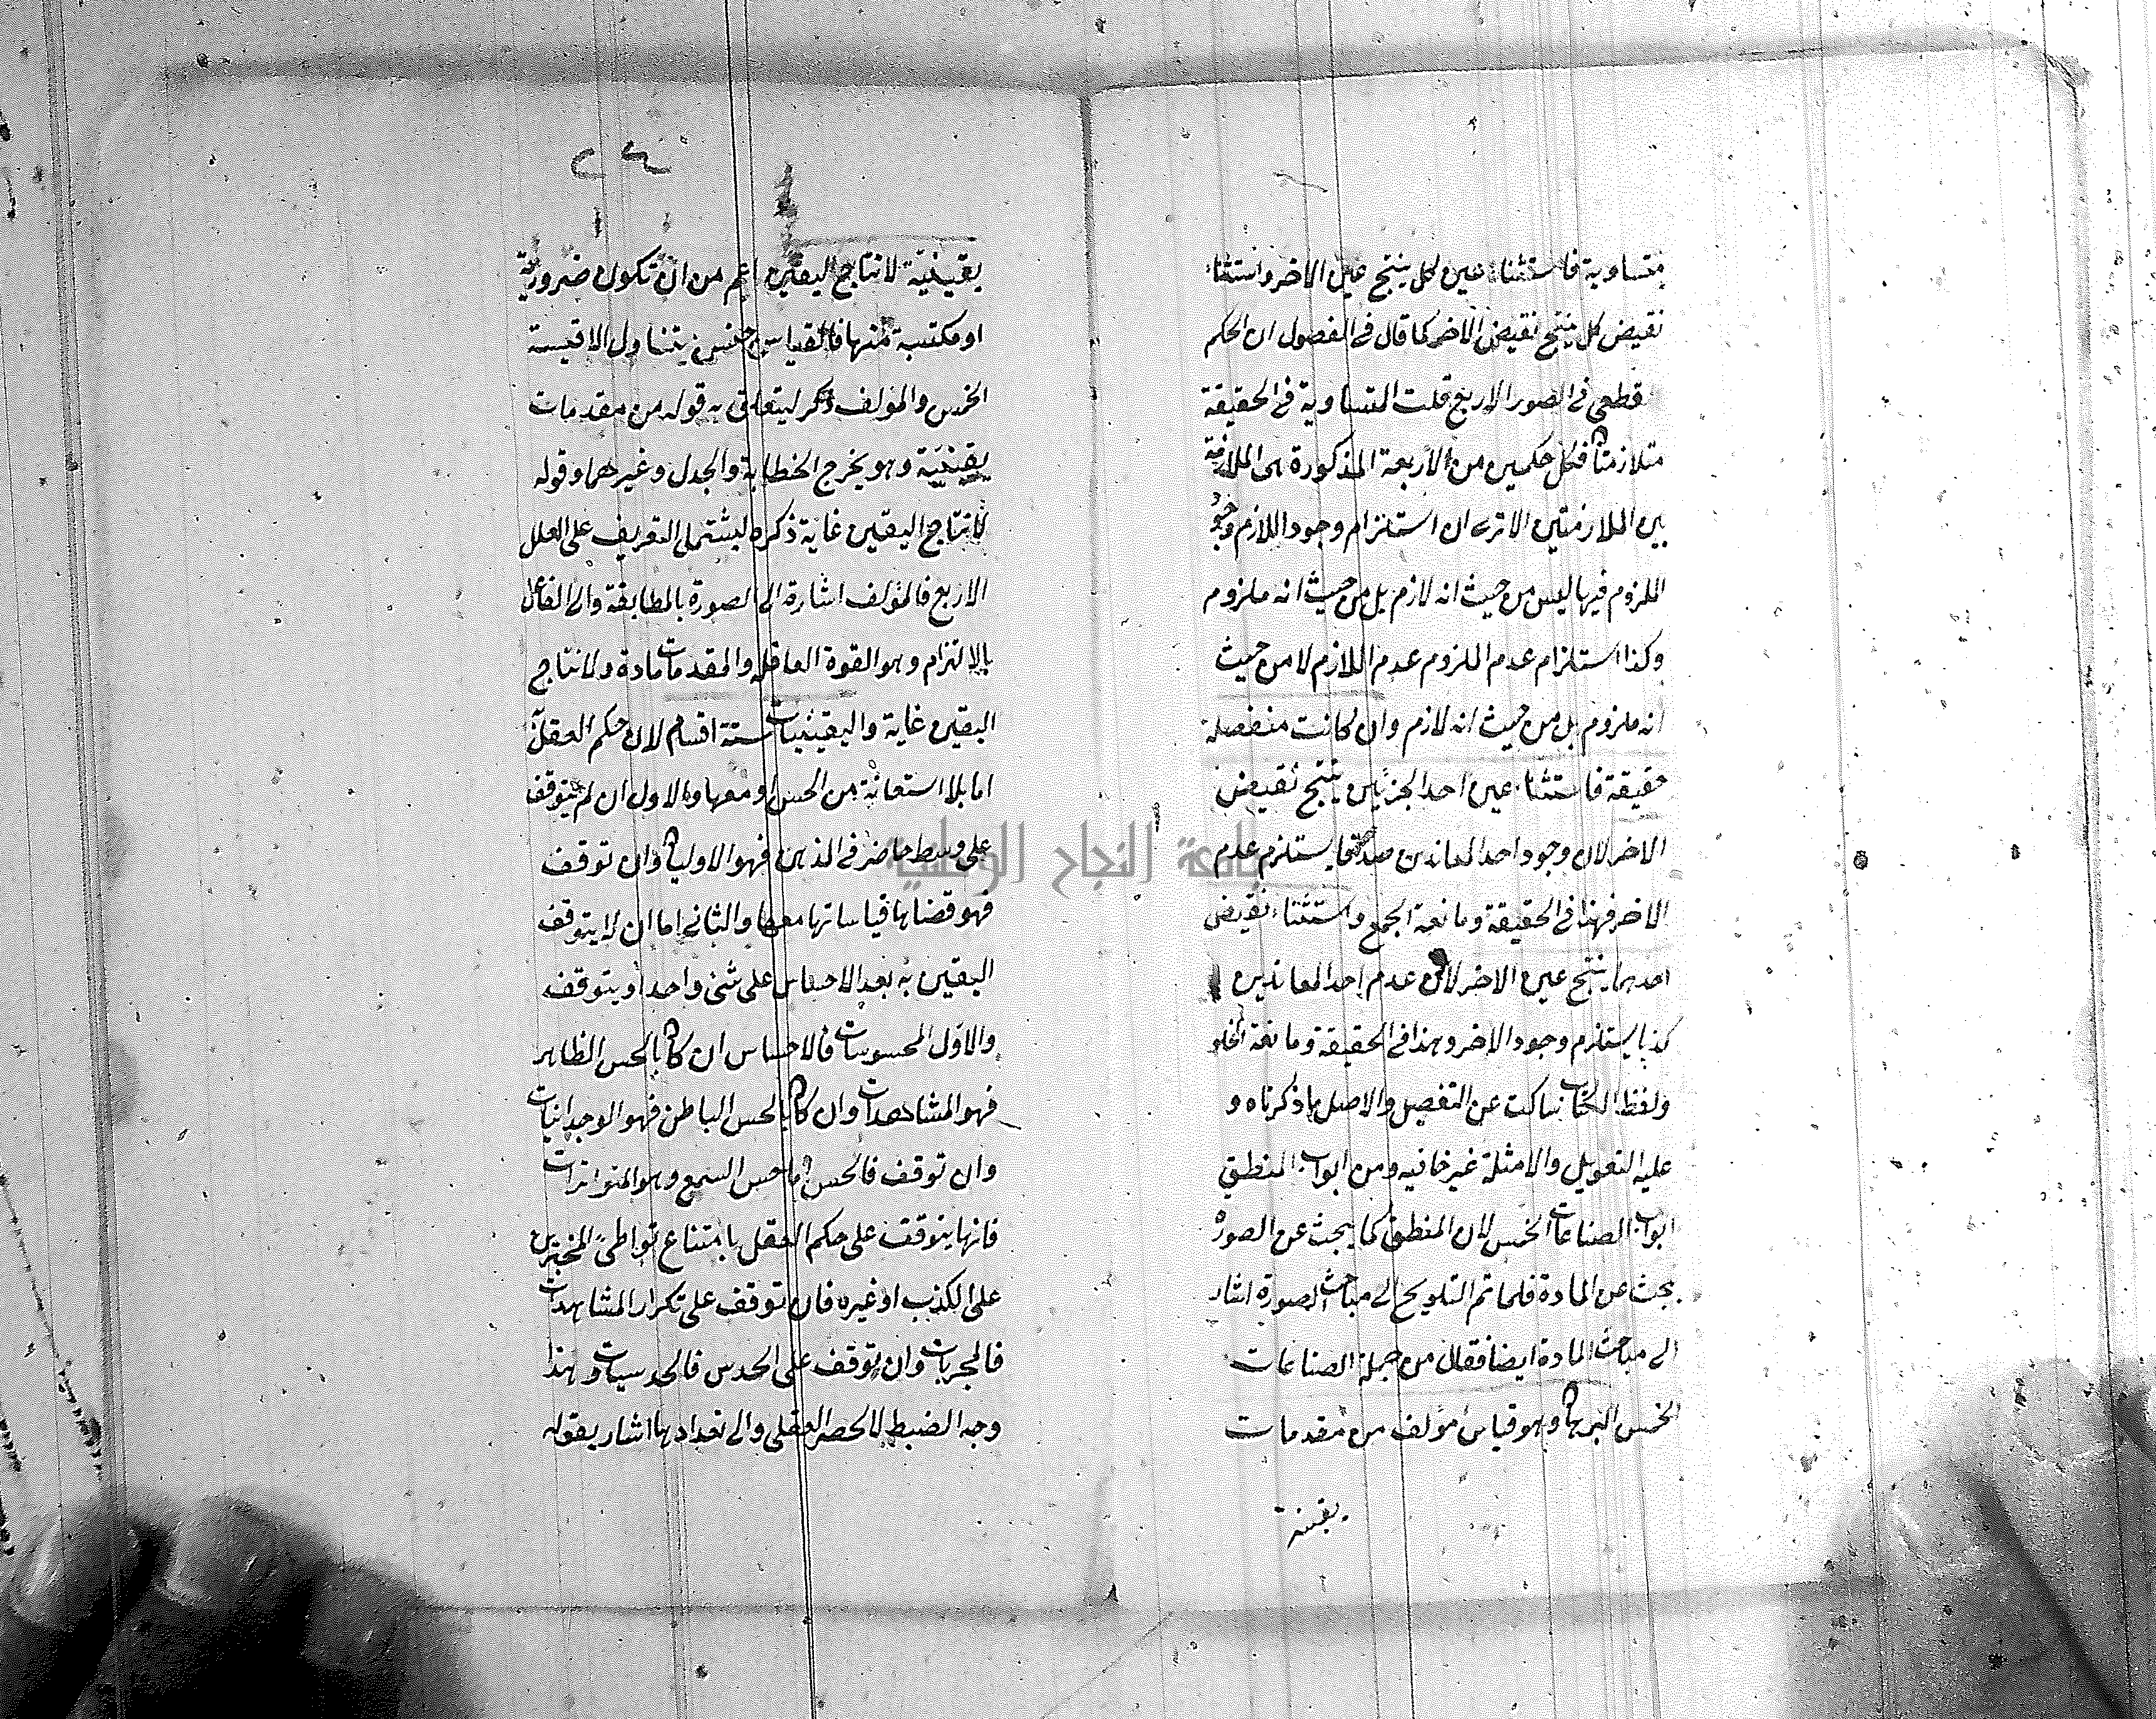 متساوية فاستثناء عين كل ينتج عين الاخر واستثناء
نقيض كل ينتج نقيض الاخر كما قال في الفصول ان الحكم
قطعي في الصور الاربع قلت المتساوية في الحقيقة
متلازمتا فكل حكمين من الاربعة المذكورة هي الملازمة
بين الملازمتين الا ترى ان استلزام وجود اللازم وجود
الملزوم فيها ليس من حيث انه لازم بل من حيث انه ملزوم
وكذا استلزام عدم الملزوم عدم اللازم لا من حيث
انه ملزوم بل من حيث انه لازم وان كانت منفصلة
حقيقة فاستثناء عين احد الجزئين ينتج نقيض
الاخر لان وجود احد المعاندين صدقا يستلزم عدم
الاخر فهذا في الحقيقة ومانعة الجمع واستثناء نقيض
احدهما ينتج عين الاخر لان عدم احد المعاندين
كذبا يستلزم وجود الاخر وهذا في الحقيقة ومانعة الخلو
ولفظ الكتاب ساكت عن التفصيل والاصل ما ذكرناه و
عليه التعويل والامثلة غير خافية ومن ابواب المنطق
ابواب الصناعات الخمس لان المنطق كما يبحث عن الصورة
يبحث عن المادة فلما تم التلويح الى مباحث الصورة اشار
الى مباحث المادة ايضا فقال من جملة الصناعات
الخمس البرها وهو قياس مؤلف من مقدمات
يقينية
٢٩
يقينية لانتاج اليقين اعم من ان تكون ضرورية
او مكتسبة منها فالقياس جنس يتناول الاقيسة
الخمس والمؤلف ذكر ليتعلق به قوله من مقدمات
يقينية وهو يخرج الخطابة والجدل وغيرهما وقوله
لانتاج اليقين غاية ذكره ليشتمل التعريف على العلل
الاربع فالمؤلف اشارة الى الصورة بالمطابقة والى الفاعل
بالالتزام وهو القوة العاقلة والمقدمات مادة ولانتاج
اليقين غاية واليقينيات ستة اقسام لان حكم العقل
اما بلا استعانة من الحس او معها والاول ان لم يتوقف
على وسط حاضر في الذهن فهو الاوليا وان توقف
فهو قضايا قياساتها معها والثاني اما ان لا يتوقف
اليقين به بعد الاحساس على شئ واحد او يتوقف
والاول المحسوسات فالاحساس ان كا بالحس الظاهر
فهو المشاهدات وان كا بالحس الباطن فهو الوجدانيات
وان توقف فالحس اما حس السمع وهو المتواترات
فانها يتوقف على حكم العقل بامتناع تواطئ المخبرين
على الكذب او غيره فان توقف على تكرار المشاهدات
فالمجربات وان توقف على الحدس فالحدسيات وهذا
وجه الضبط لا الحصر العقلي والى تعدادها اشار بقوله
جامعة النجاح الوطنية